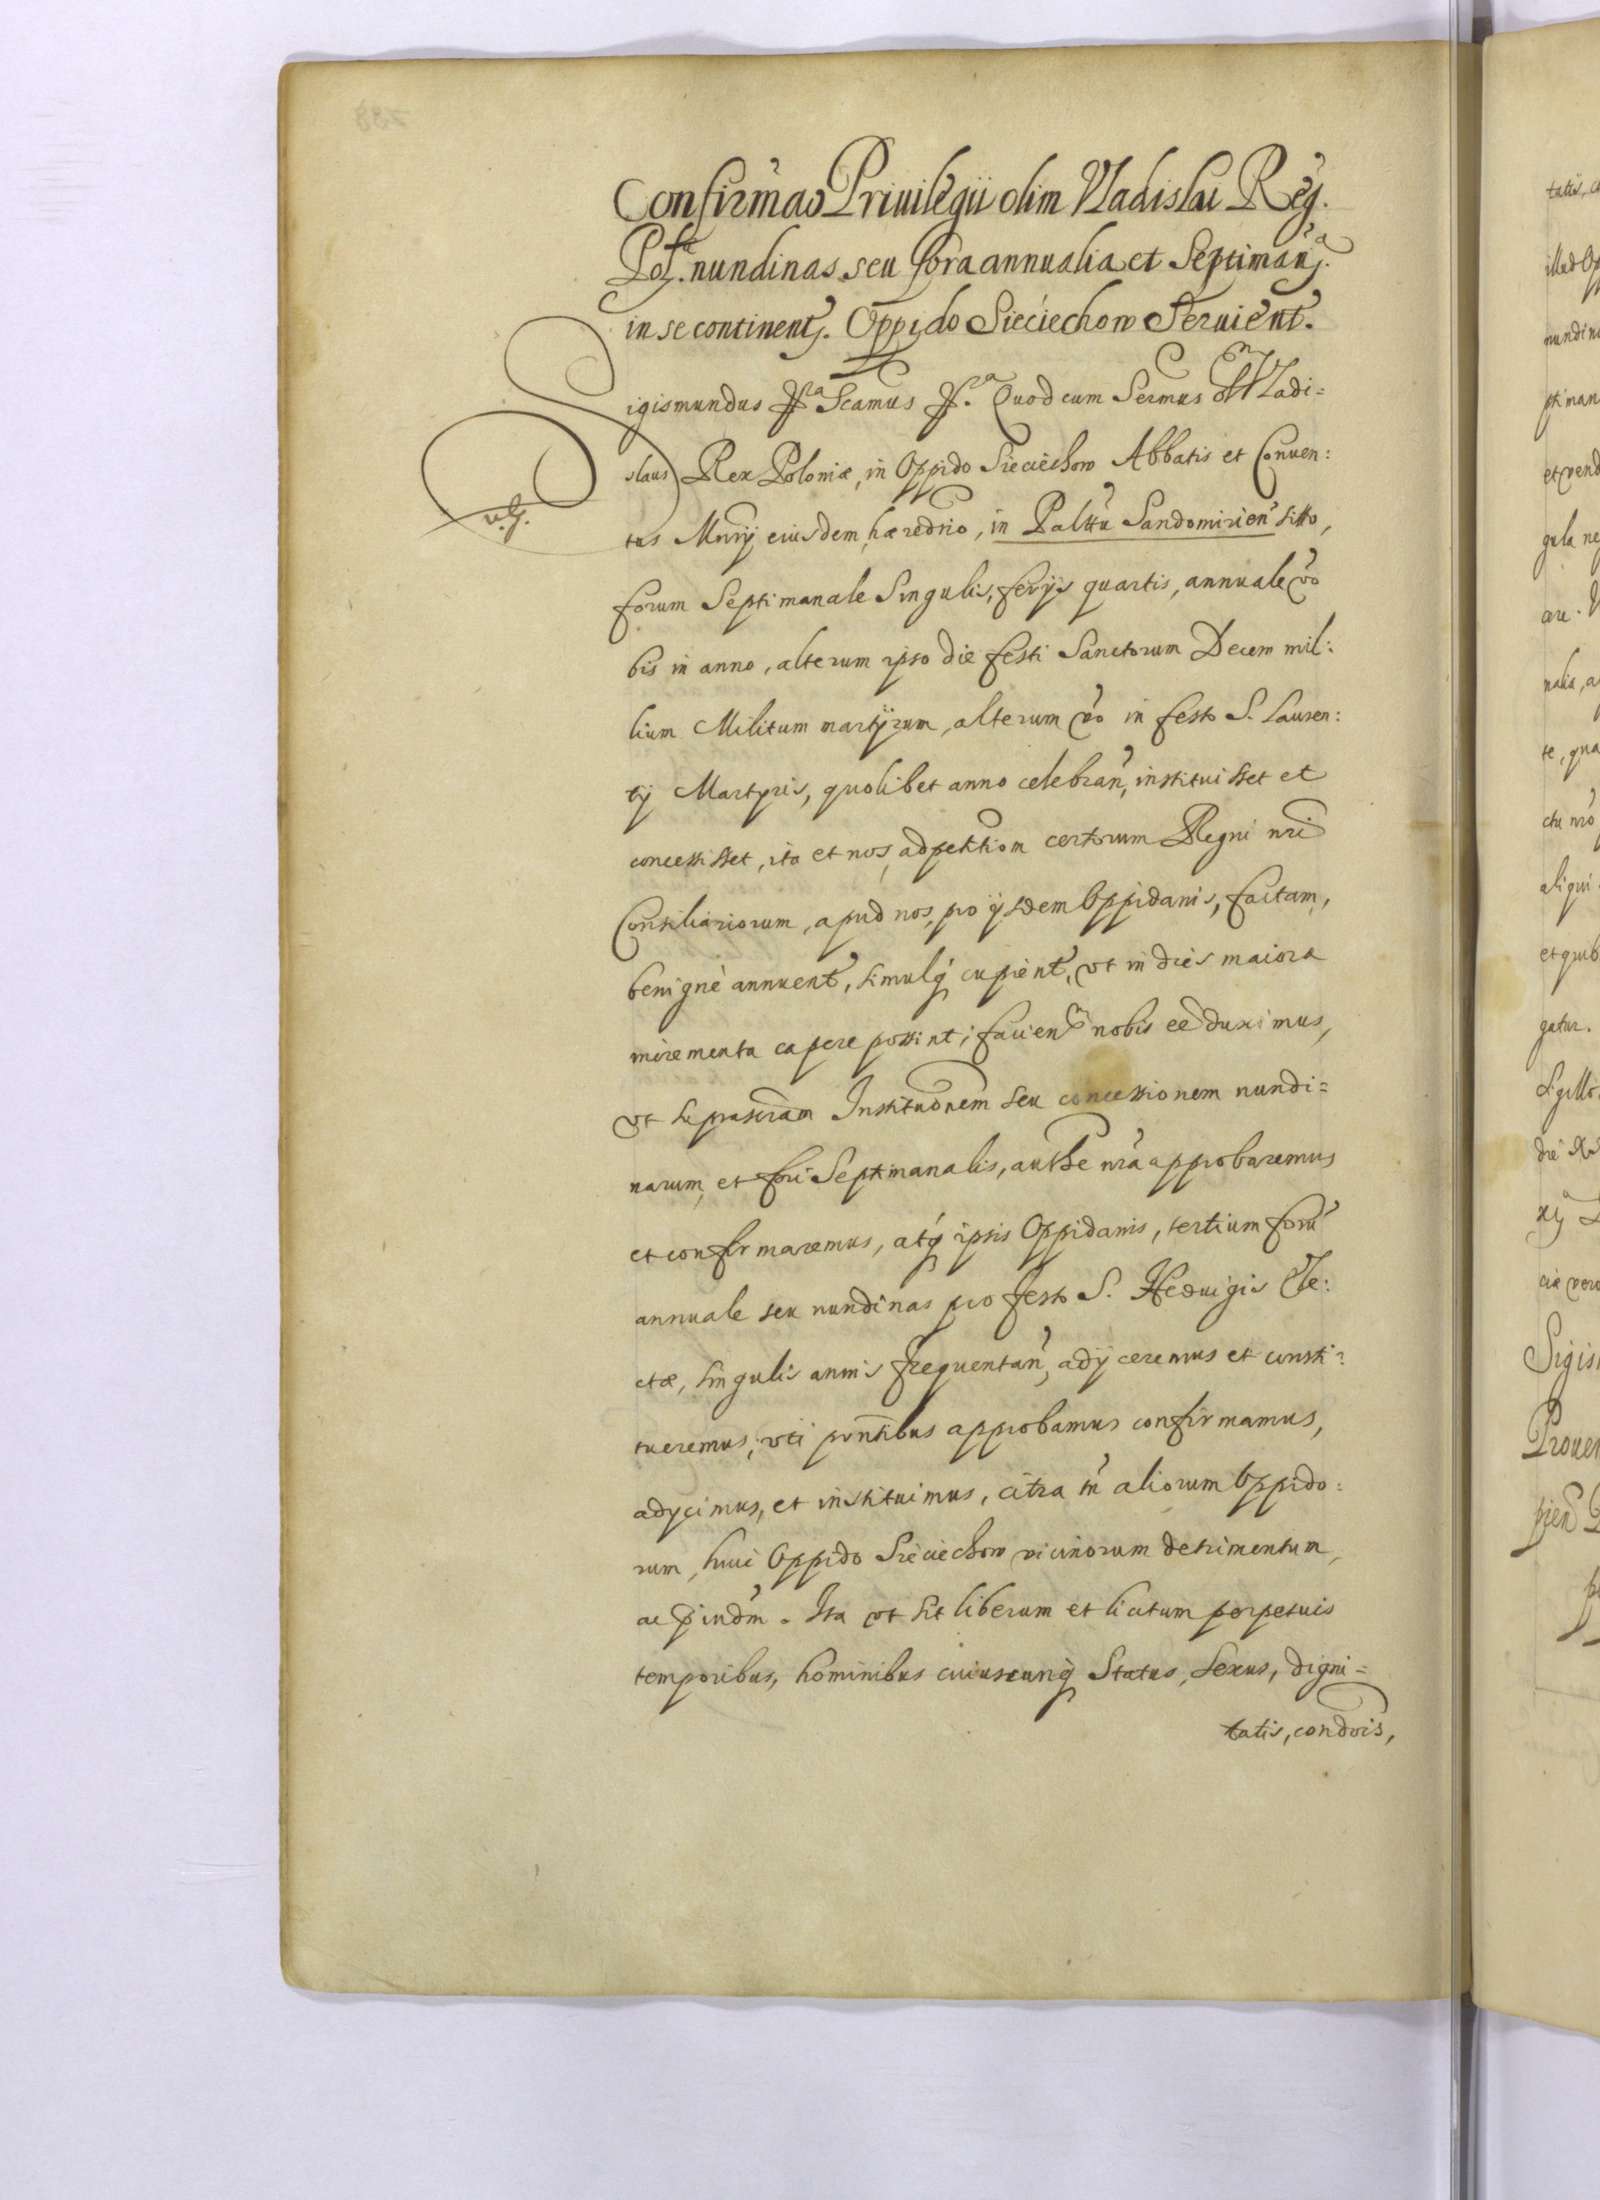 Confirmao Priuilegii olim Vladislai Reg.
Pol. nundinas seu fora annualia et Septiman.
in se continent. Oppido Sieciechow Seruient.
Sigismundus Scamus Quod cum Sermus olim Wladi=
slaus Rex Poloniæ, in Oppido Sieciechow Abbatis et Conuen:
tus Mnrij eiusdem hæredrio, in Palttu Sandomirien sitto,
forum Septimanale Singulis, ferijs quartis, annuale vo
bis in anno, alterum ipso die festi Sanctorum Decem mil:
lium Militum martijrum, alterum vo in festo S. Lauren:
tij Martyris, quolibet anno celebran, instituisset et
concessisset, ita et nos, ad petition certorum Regni nri
Consiliariorum, apud nos, pro ijsdem Oppidanis, factam,
benigne annuent, simulq cupient, vt in dies maiora
incrementa capere possint; facien nobis ee duximus,
vt suprascram Institutionem seu concessionem nundi=
narum, et fori Septimanalis, authe nra approbaremus
et confirmaremus, atq ipsis Oppidanis, tertium foru
annuale seu nundinas pro festo S. Heduigis Ele:
ctæ, singulis annis frequentan, adijceremus et consti:
tueremus; vti pntibus approbamus confirmamus,
adycimus, et instituimus, citra tn aliorum Oppido:
rum, huic Oppido Sieciechow vicinorum detrimentum,
ac pindm. Ita vt sit liberum et licitum perpetuis
temporibus, hominibus cuiuscunq Status, sexus, digni=
tatis, condois,